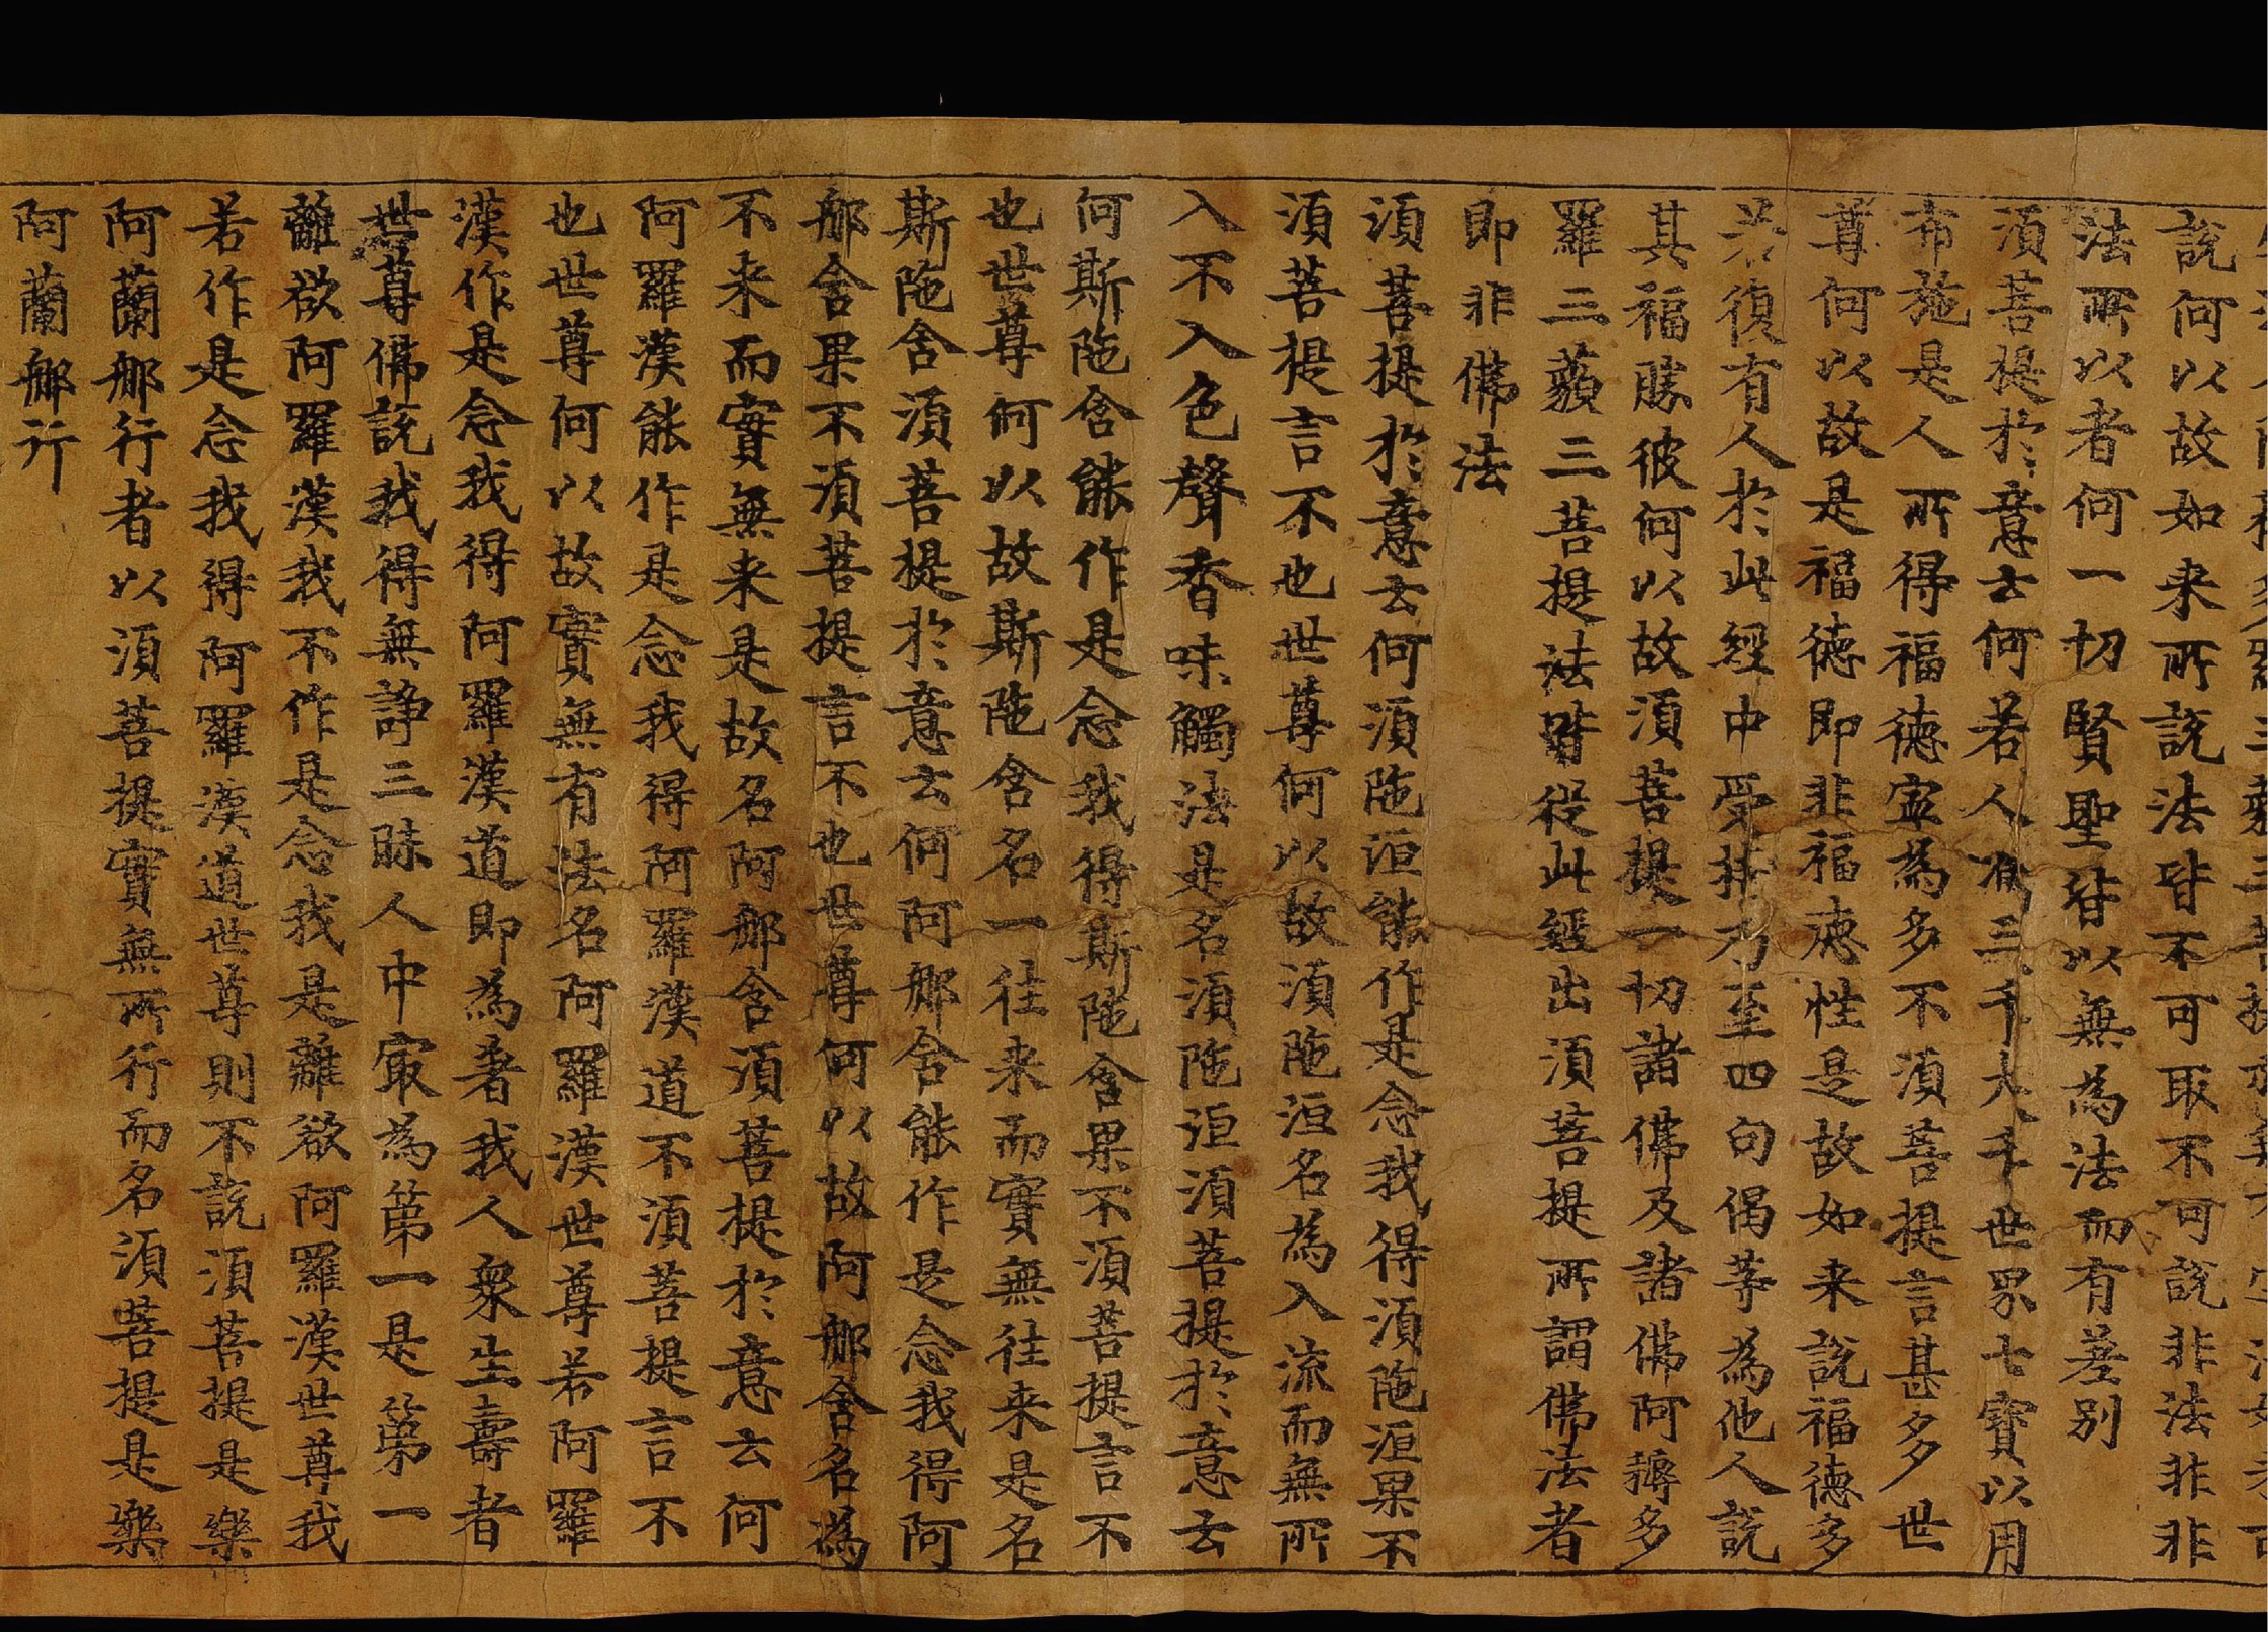 說何以故如来所說法皆不可取不可說非法非非
法所以者何一切賢聖皆以無為法而有差別
須菩提於意云何若人滿三千大千世界七寶以用
布施是人所得福德寧為多不須菩提言甚多世
尊何以故是福德即非福德性是故如来說福德多
若復有人於此經中受持乃至四句偈等為他人說
其福勝彼何以故須菩提一切諸佛及諸佛阿耨多
羅三藐三菩提法皆從此經出須菩提所謂佛法者
即非佛法
須菩提於意云何須陁洹能作是念我得須陁洹果不
須菩提言不也世尊何以故須陁洹名為入流而無所
入不入色聲香味觸法是名須陁洹須菩提於意云
何斯陁含能作是念我得斯陁含果不須菩提言不
也世尊何以故斯陁含名一往来而實無往来是名
斯陁含須菩提於意云何阿那含能作是念我得阿
那含果不須菩提言不也世尊何以故阿那含名為
不来而實無来是故名阿那含須菩提於意云何
阿羅漢能作是念我得阿羅漢道不須菩提言不
也世尊何以故實無有法名阿羅漢世尊若阿羅
漢作是念我得阿羅漢道即為著我人衆生壽者
世尊佛說我得無諍三昧人中冣為第一是第一
離欲阿羅漢我不作是念我是離欲阿羅漢世尊我
若作是念我得阿羅漢道世尊則不說須菩提是樂
阿蘭那行者以須菩提實無所行而名須菩提是樂
阿蘭那行